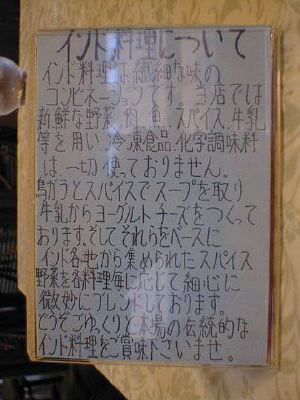 インド料理について
インド料理は、繊細な味の
コンビネーションです。当店では
新鮮な野菜、肉、魚、スパイス、牛乳
等を用い、冷凍食品、化学調味料
は、一切使っておりません。
鳥ガラとスパイスでスープを取り
牛乳からヨーグルト、チーズをつくって
おります。そしてそれらをベースに
インド各地から集められたスパイス
野菜を各料理毎に応じて細心に
微妙にブレンドしております。
どうぞごゆっくりと本場の伝統的な
インド料理をご賞味下さいませ。